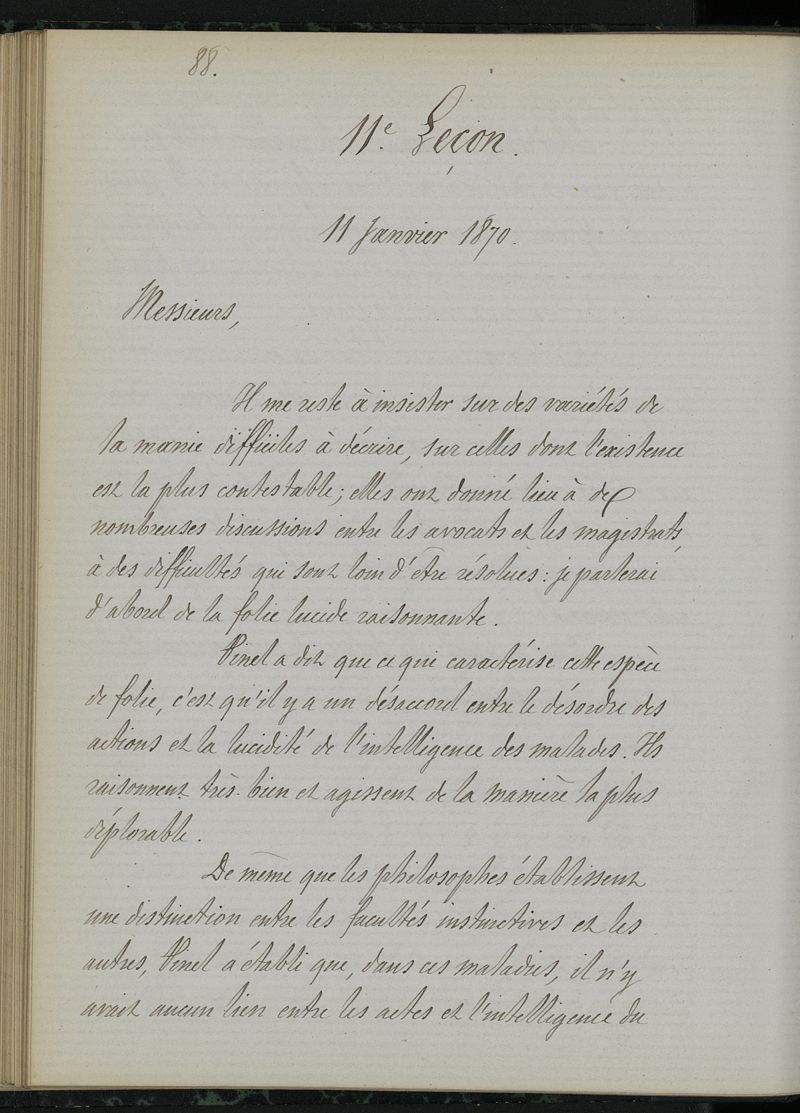 88.
11e. Leçon.
11 Janvier 1870.
Messieurs,
Il me reste à insister sur des variétés de
la manie difficiles à décrire, sur celles dont l'existence
est la plus contestable; elles ont donné lieu à de
nombreuses discussions entre les avocats et les magistrats,
à des difficultés qui sont loin d'être résolues: je parlerai
d'abord de la folie lucide raisonnante.
Pinel a dit que ce qui caractérise cette espèce
de folie, c'est qu'il y a un désaccord entre le désordre des
actions et la lucidité de l'intelligence des malades. Ils
raisonnent très-bien et agissent de la manière la plus
déplorable.
De même que les philosophes établissent
une distinction entre les facultés instinctives et les
autres, Pinel a établi que, dans ces maladies, il n'y
avait aucun lien entre les actes et l'intelligence du